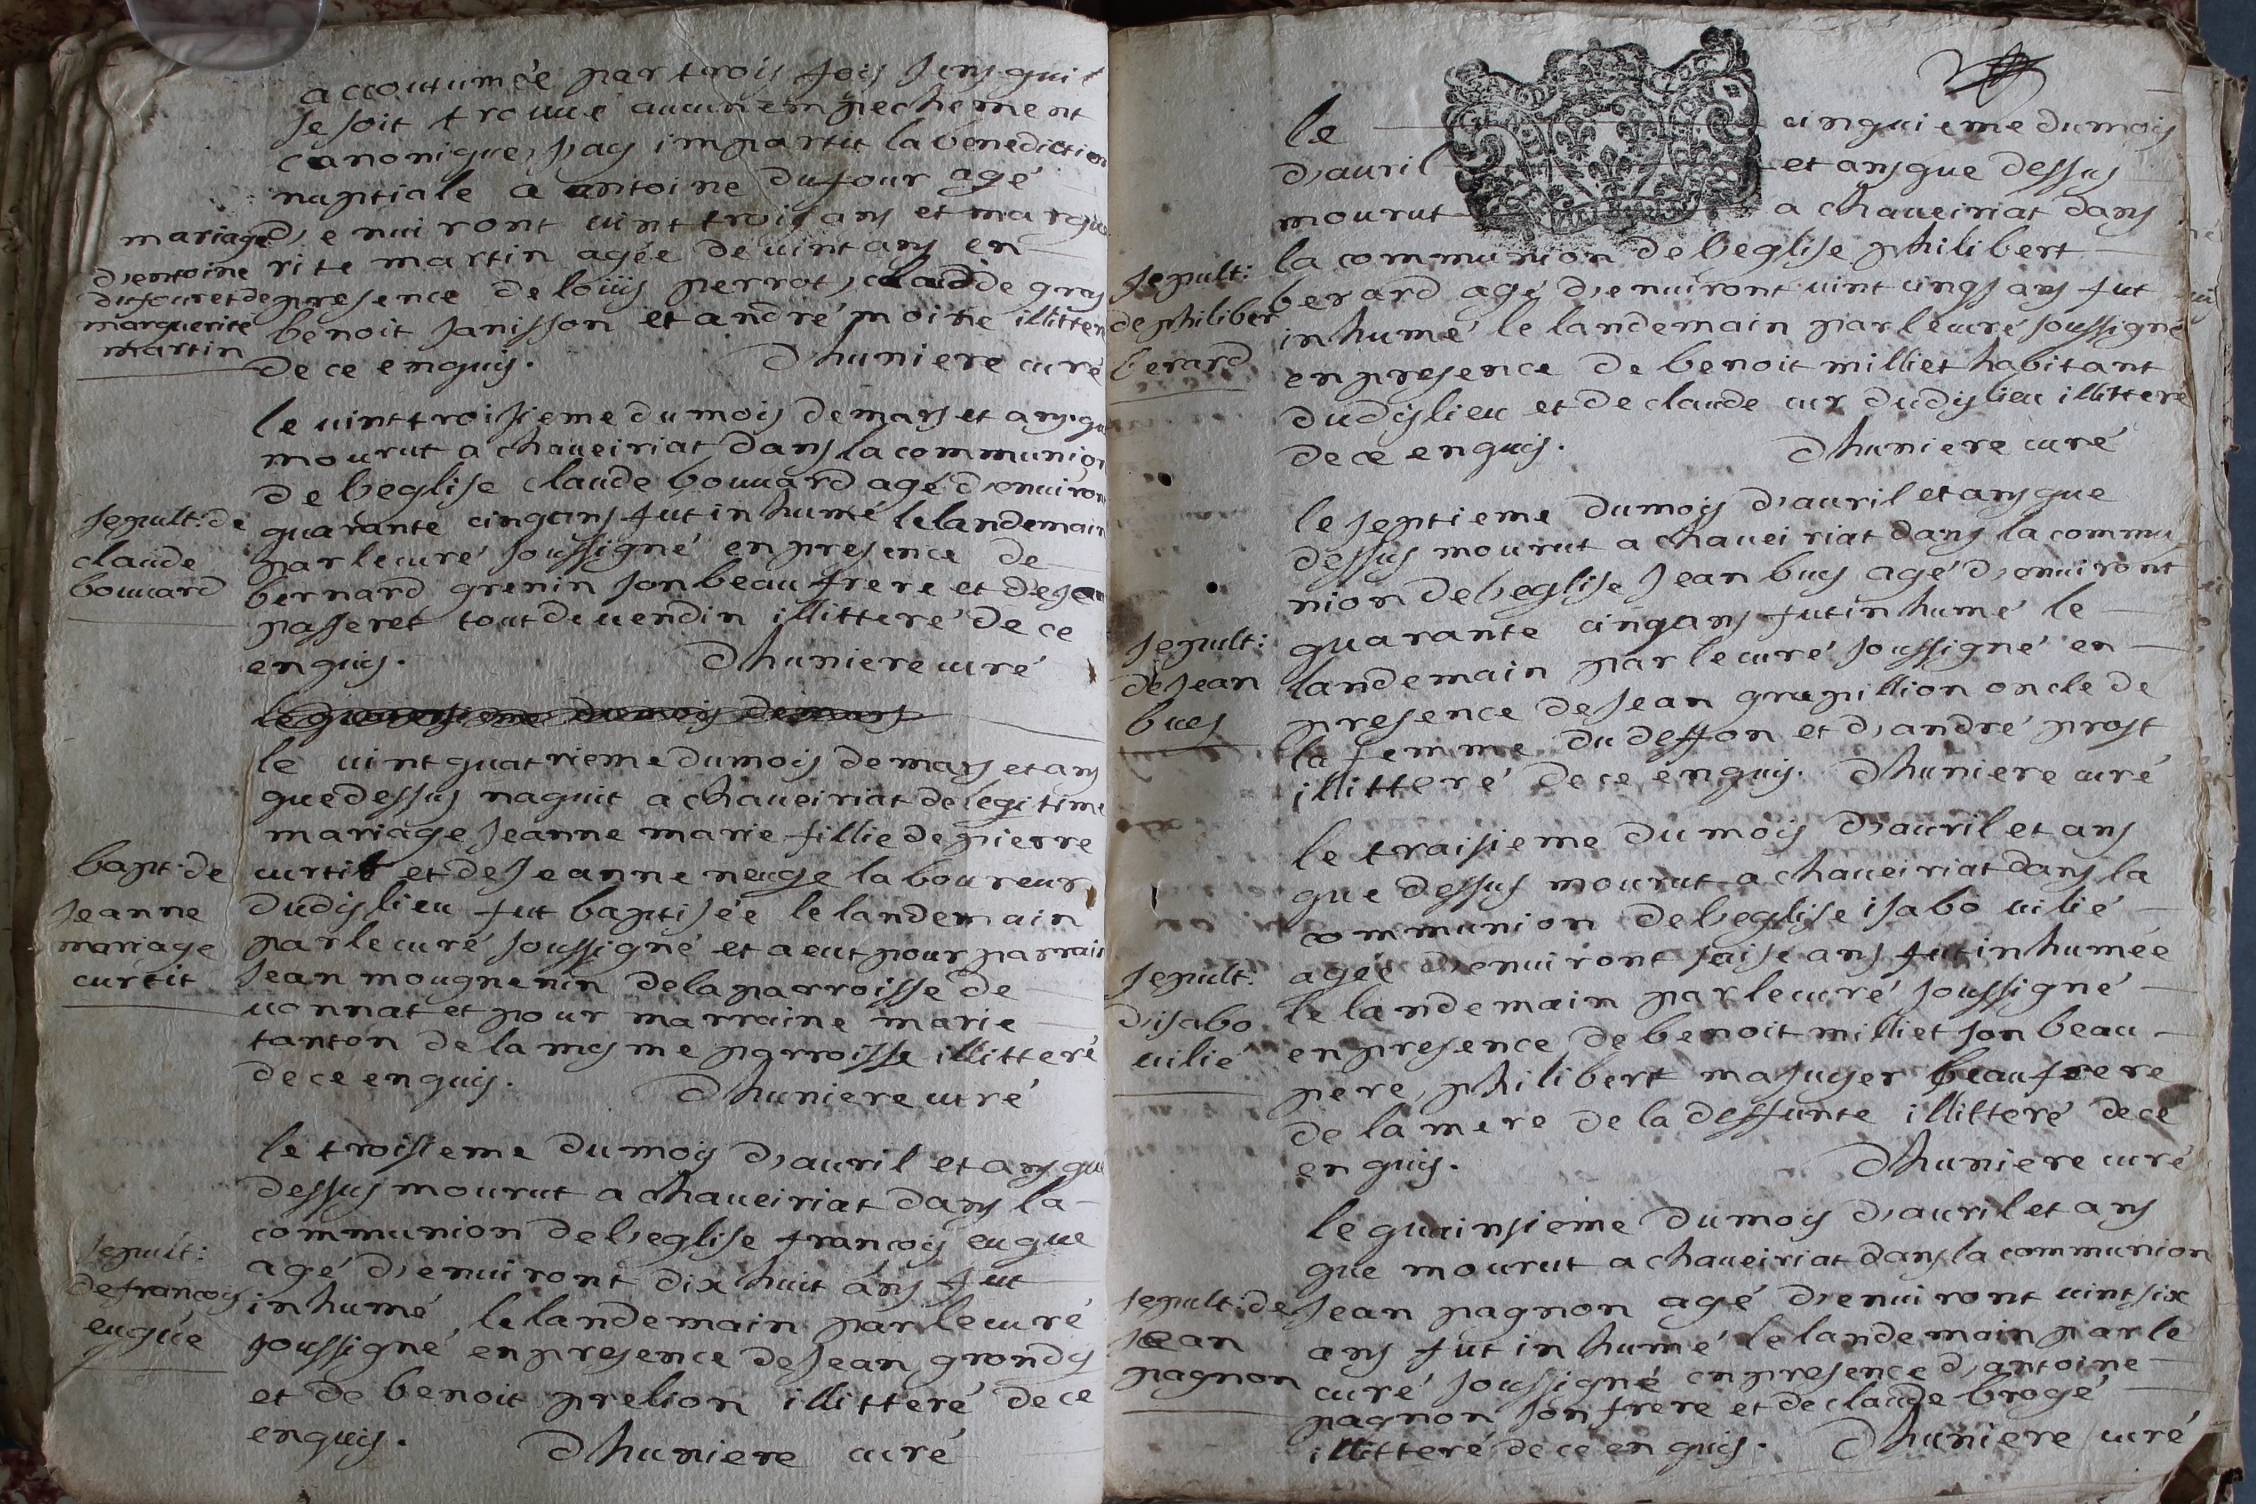 accoutumée par trois fois sens qui
se soit trouué aucun empechement
canonique, j,ay impartit la benediction
nuptiale a antoine dufour agé
d,enuiront uint trois ans et margue
rite martin agée de uint ans en
presence de loüis perrot, claude gros
benoit janisson et andré moine illitteré
de ce enquis. Dhuniere curé
mariage
d,entoine
dufour et de
marguerite
martin
le uint troisieme du mois de mars et ans que
mourut a chaueiriat dans la communion
de l,eglise claude bouuard agé d,enuiront
quarante cinq ans fut inhumé le landemain
par le curé soussigné en presence de
bernard grenin son beau frere et de jean
paseret tout de uendin illitteré de ce
enquis. Dhuniere curé
sepult: de
claude
bouuard
le uint quatrieme du mois de mars et ans
que dessus naquit a chaueiriat de legitime
mariage jeanne marie fillie de pierre
curtit et de jeanne neuge laboureur
dudis lieu fut baptisée le landemain
par le curé soussigné et a eut pour parrain
jean mougnenin de la parroisse de
uonnat et pour marraine marie
tanton de la mesme parroisse illitteré
de ce enquis. Dhuniere curé
bapt. de
jeanne
mariage
curtit
le troisieme du mois d,auril et ans que
dessus mourut a chaueiriat dans la
communion de l,eglise françois eugue
agé d,enuiront dix huit ans fut
inhumé le landemain par le curé
soussigné en presence de jean grondis
et de benoit prelion illitteré de ce
enquis. Dhuniere curé
sepult:
de françois
eugue
le cinquieme du mois
d,auril et ans que dessus
mourut a chaueiriat dans
la communion de l,eglise philibert
berard agé d,enuiront uint cinq ans fut
inhumé le landemain par le curé soussigné
en presence de benoit milliet habitant
dudis lieu et de claude cur dudis lieu illitteré
de ce enquis. Dhuniere curé
sepult:
de philiber
berard
le septieme du mois d,auril et ans que
dessus mourut a chaueiriat dans la commu
nion de l,eglise jean bues agé d,enuiront
quarante cinq ans fut inhumé le
landemain par le curé soussigné en
presence de jean grupillion oncle de
la femme du deffon et d,andré prost
illitteré de ce enquis. Dhuniere curé
sepult:
de jean
bues
le traisieme du mois d,auril et ans
que dessus mourut a chaueiriat dans la
communion de l,eglise isabo uilié
agée d,enuiront saise ans fut inhumée
le landemain par le curé soussigné
en presence de benoit milliet son beau
pere, philibert majuyer beau frere
de la mere de la deffunte illitteré de ce
enquis. Dhuniere curé
sepult:
d,isabo
uilié
le quinsieme du mois d,auril et ans
que mourut a chaueiriat dans la communion
jean pagnon agé d,enuiront uint six
ans fut inhumé le landemain par le
curé soussigné en presence d,antoine
pagnon son frere et de claude brogé
illitteré de ce enquis. Dhuniere curé
sepult: de
jean
pagnon